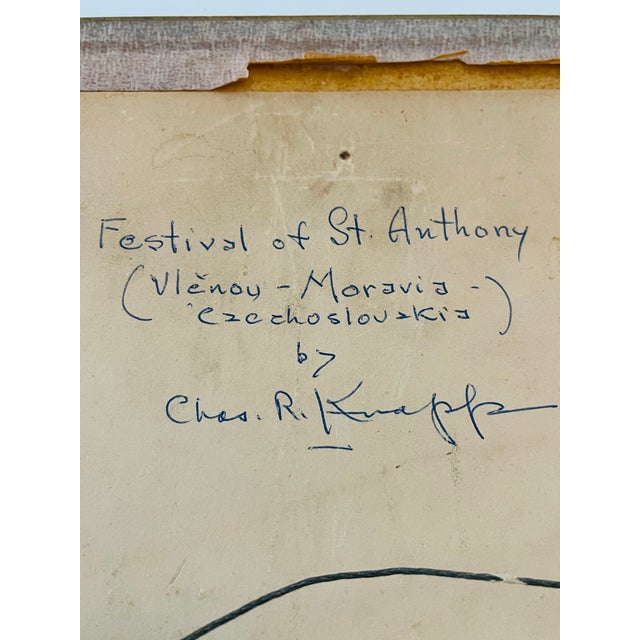 Festival of St. Anthony
(Vlěnou - Moravia -
Czechoslovakia)
by
Chas. R. Knapp